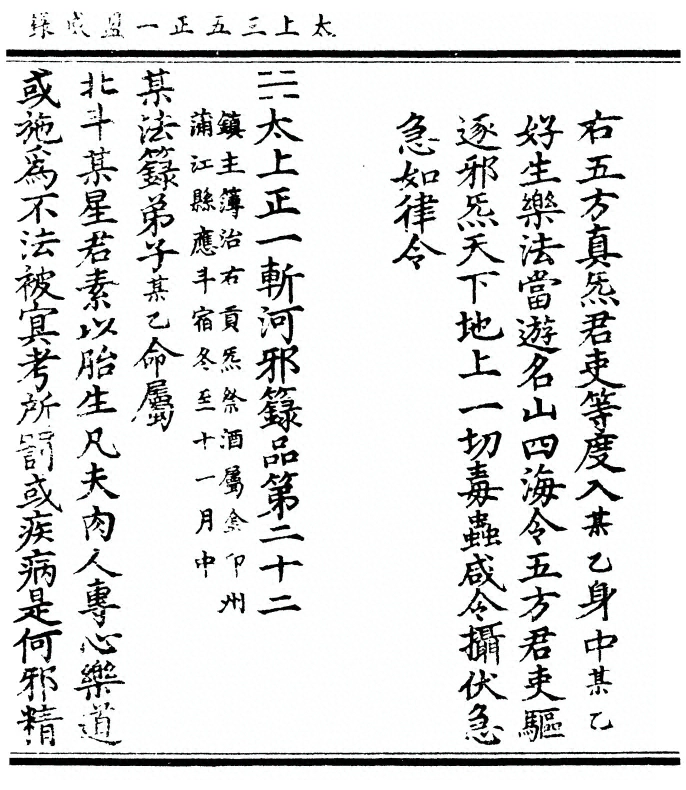 太上三五正一盟威籙
右五方真炁君吏等度入某乙身中某乙
好生樂法當遊名山四海令五方君吏驅
逐邪炁天下地上一切毒蟲咸令攝伏急
急如律令
太上正一斬河邪籙品第二十二
鎮主簿治右貢炁祭酒屬金卯州
蒲江縣應斗宿冬至十一月中
某法籙弟子某乙命屬
北斗某星君素以胎生凡夫肉人專心樂道
或施爲不法被㝠考所罰或疾病是何邪精